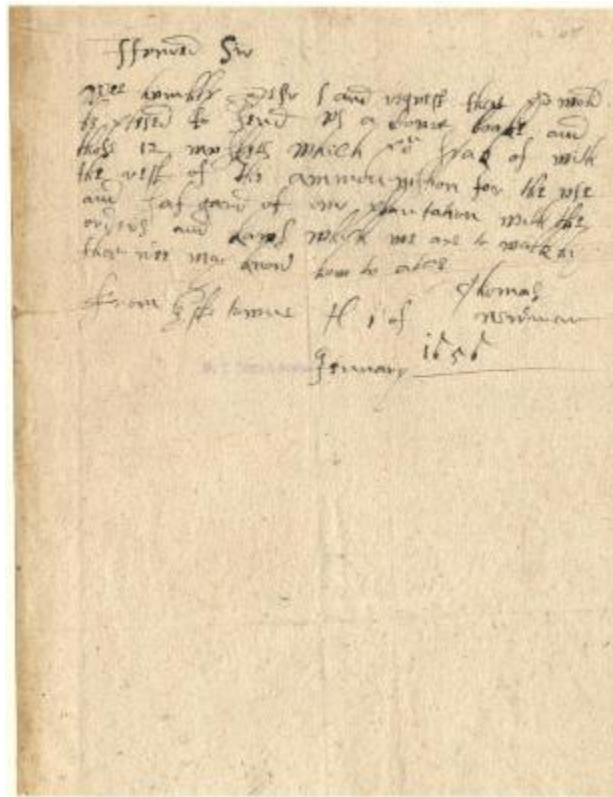 Sir
wee humbly desire and request that you would
be pleased to send us a towne booke and
thos 12 muskets which you spak of with
the rest of the ammonition for the use
and saf gard of our plantation with the
orders and laws which we are to walk by
that wee may know how to act
From the 1 of Thomas Newman
January 1656